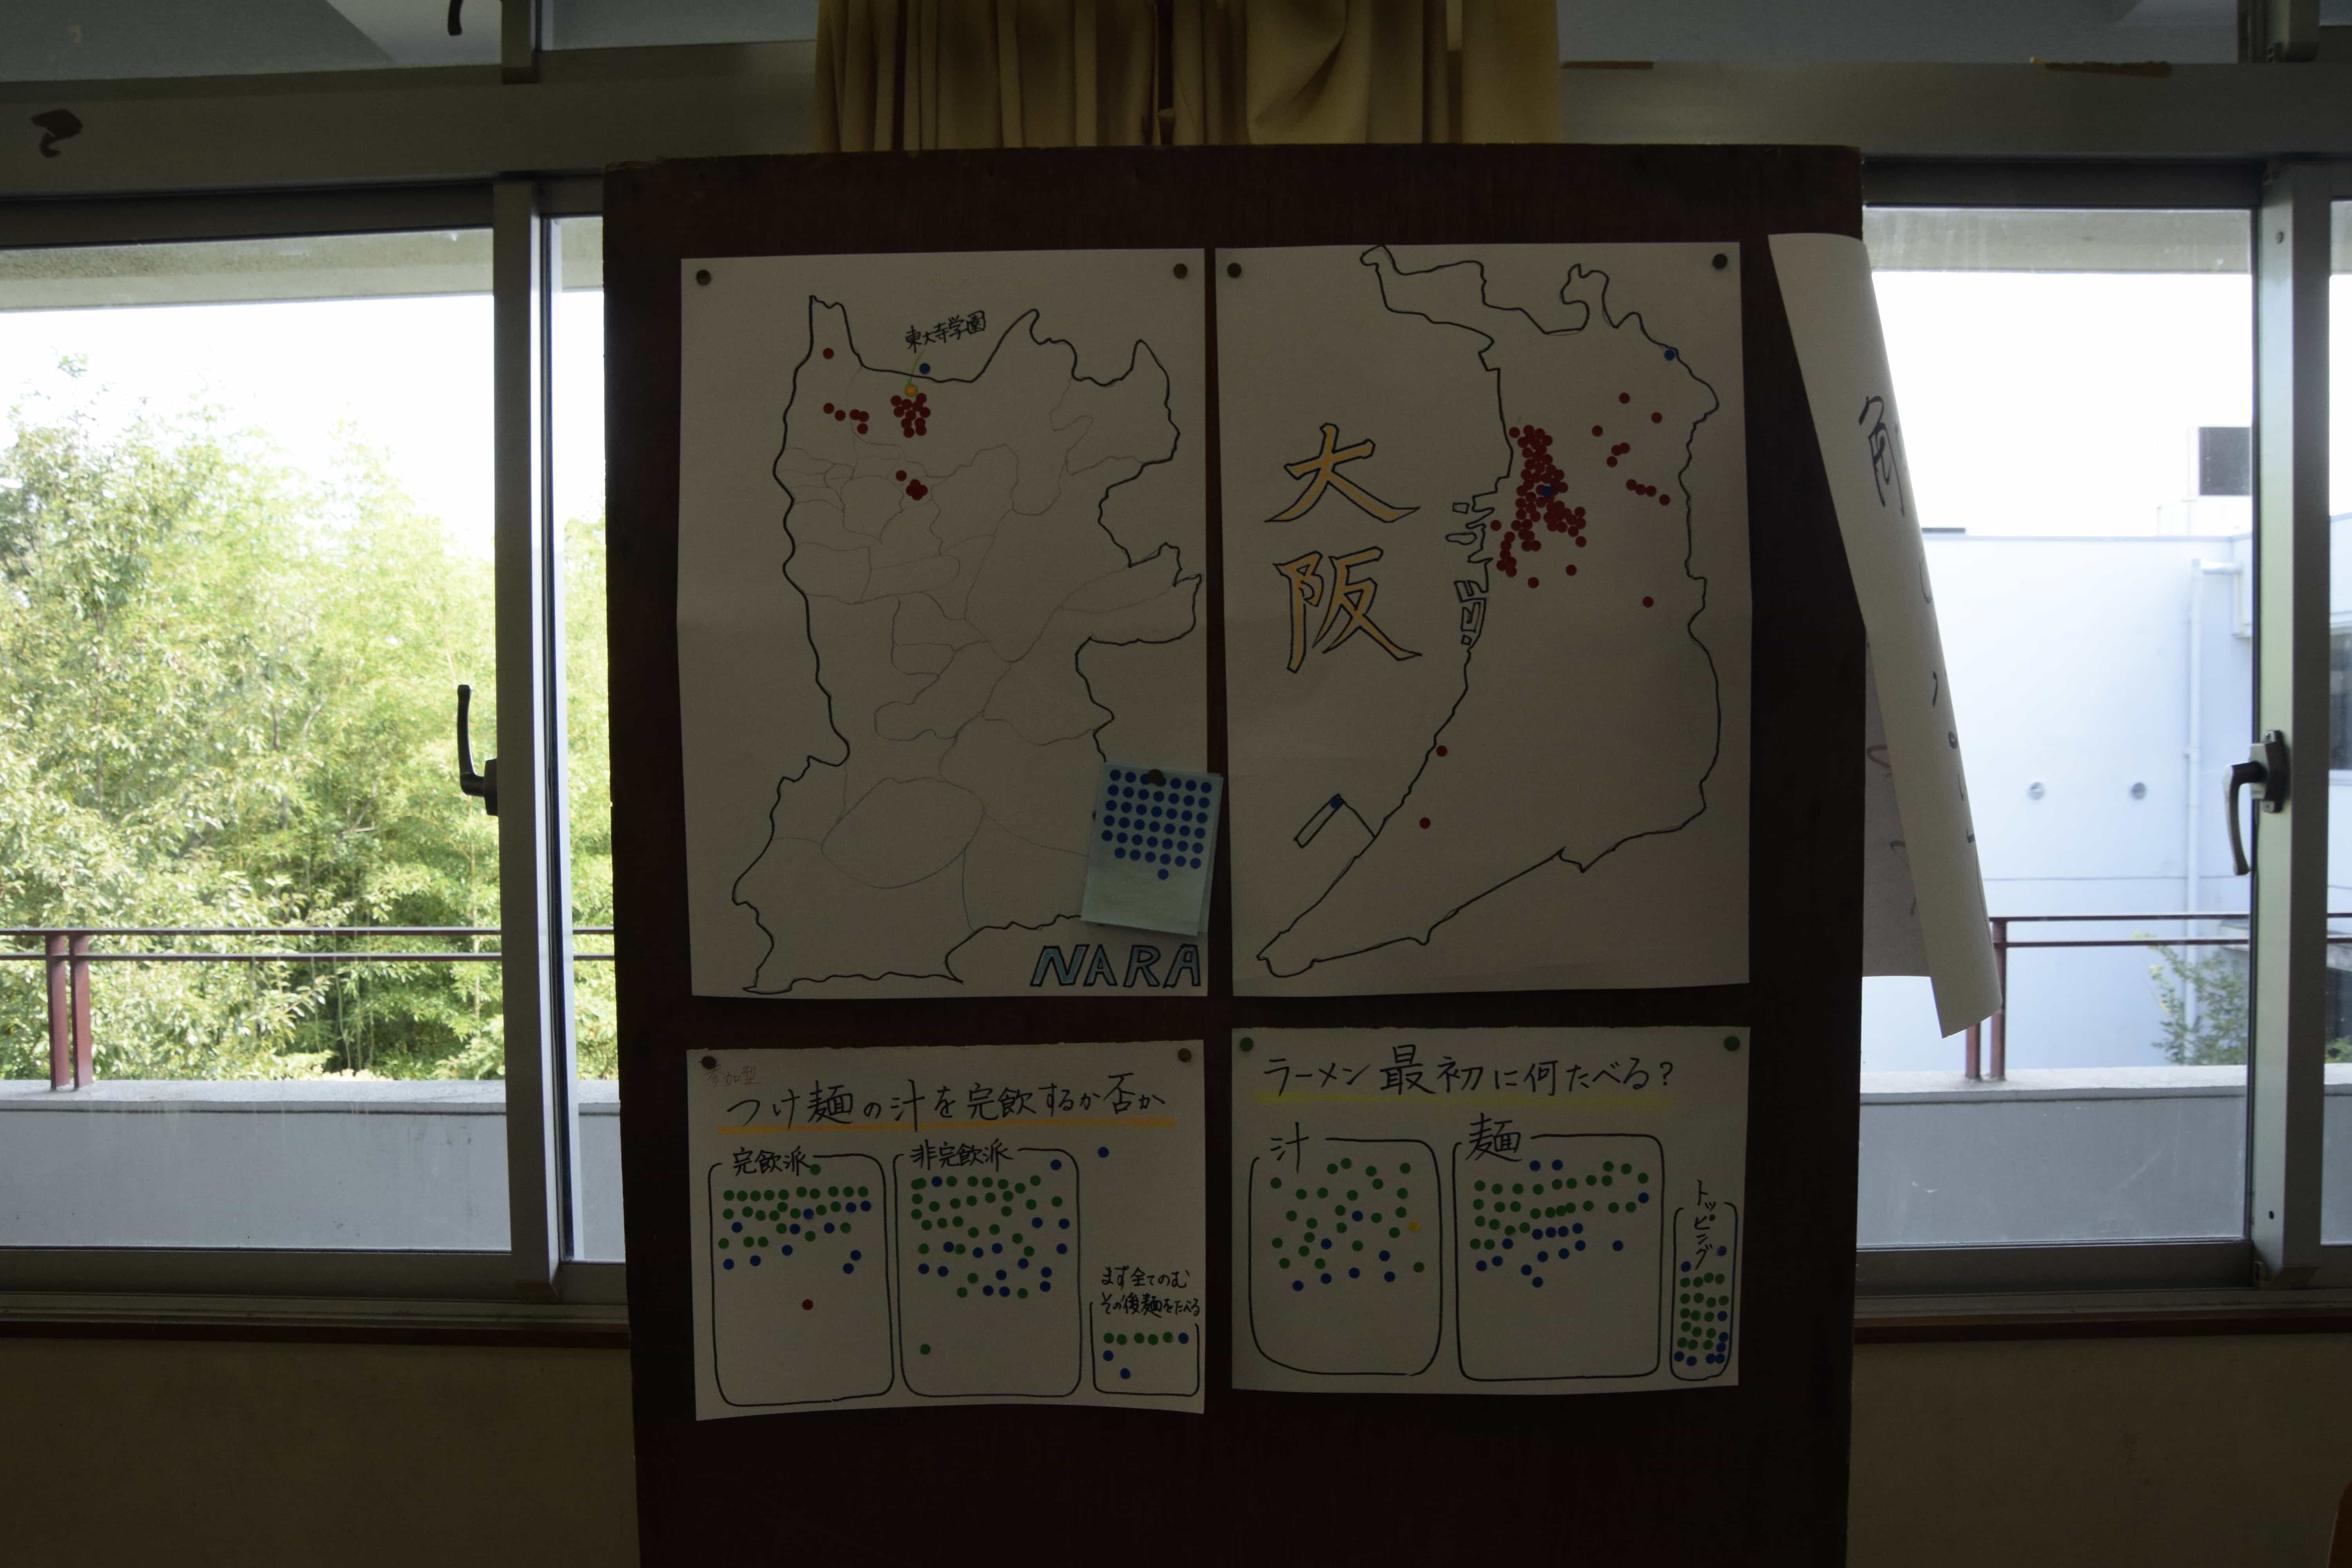 東大寺学園
NARA
大阪
参加型
つけ麺の汁を完飲するか否か
完飲派
非完飲派
まず全てのむ
その後麺をたべる
ラーメン最初に何たべる?
汁
麺
トッピング